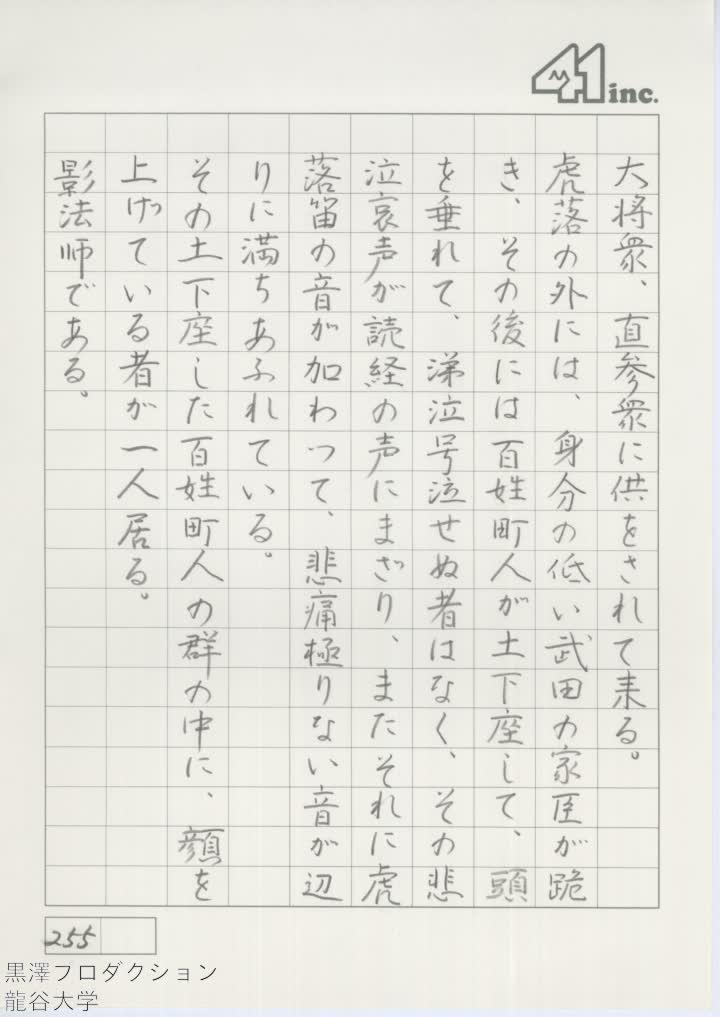 41 inc.
大将衆、直参衆に供をされて来る。
虎落の外には、身分の低い武田の家臣が跪
き、その後には百姓町人が土下座して、頭
を垂れて、涕泣号泣せぬ者はなく、その悲
泣哀声が読経の声にまざり、またそれに虎
落笛の音が加わって、悲痛極りない音が辺
りに満ちあふれている。
その土下座した百姓町人の群の中に、顔を
上げている者が一人居る。
影法師である。
255
黒澤フロダクション
龍谷大学